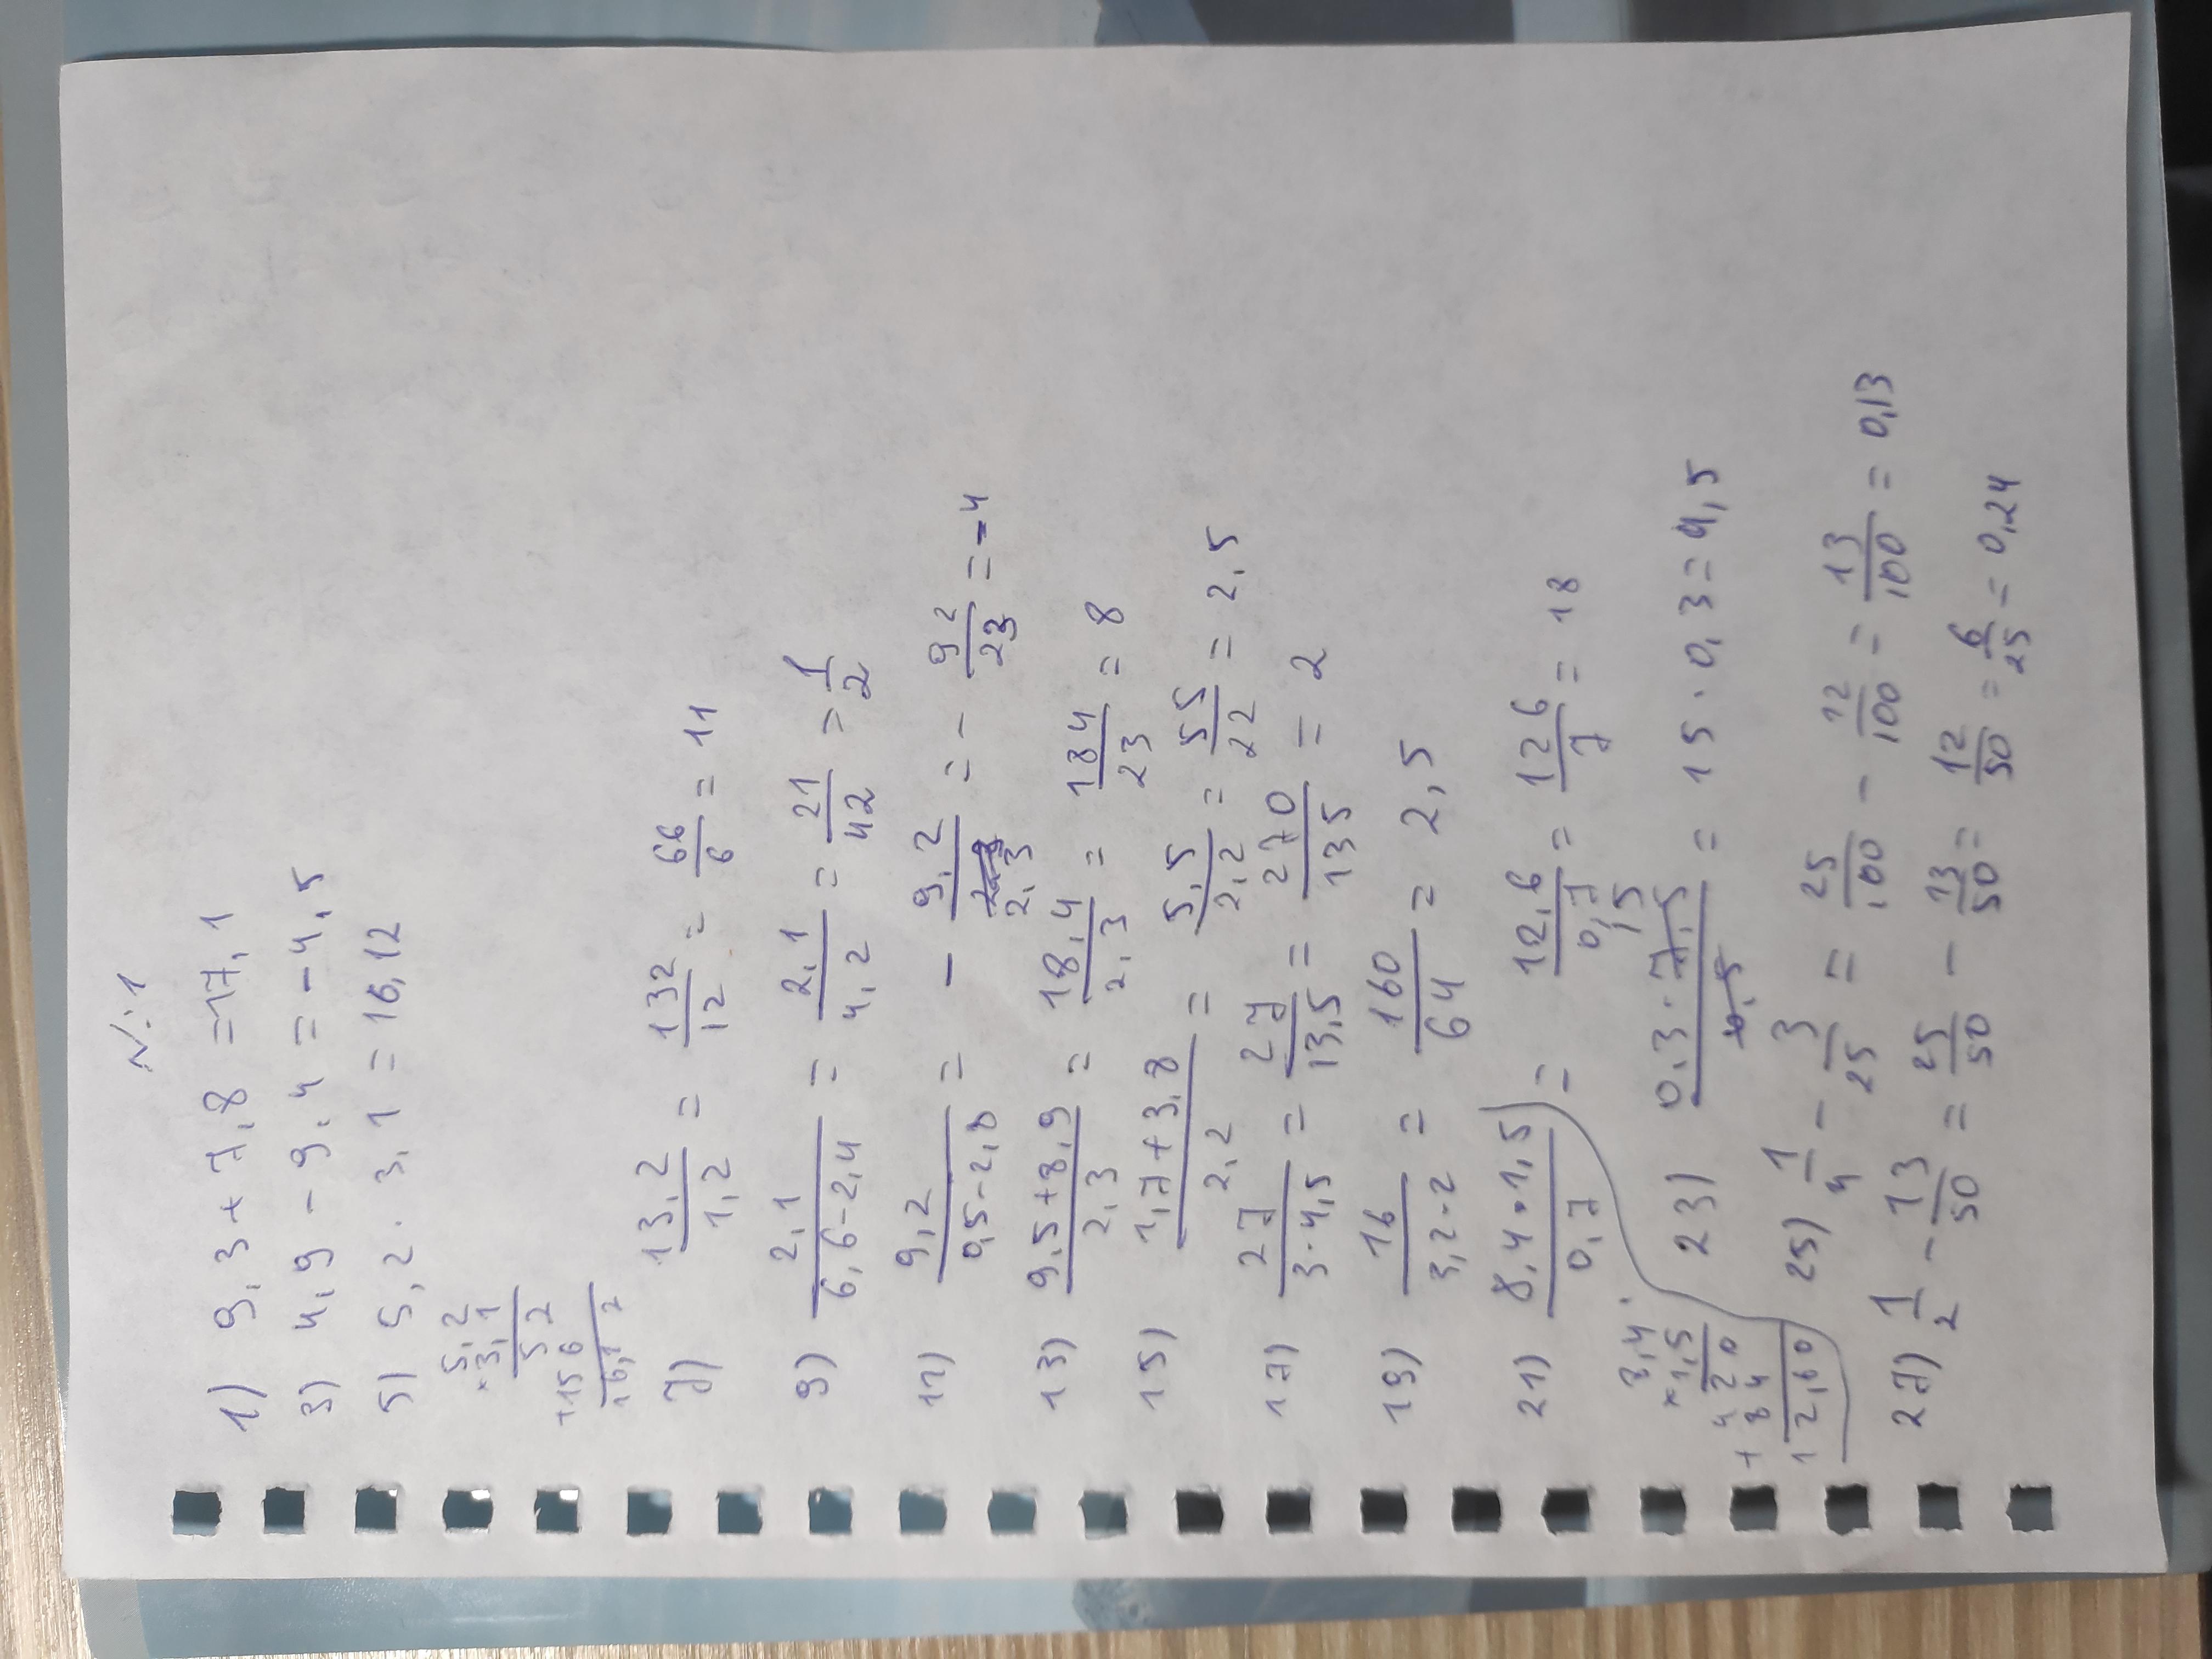 N:1
1) 9,3 + 7,8 = 17,1
3) 4,9 - 9,4 = -4,5
5) 5,2 · 3,1 = 16,12
5,2
×3,1
52
+156
16,12
7) 13,2/1,2 = 132/12 = 66/6 = 11
9) 2,1/(6,6-2,4) = 2,1/4,2 = 21/42 = 1/2
12) 9,2/(0,5-2,8) = - 9,2/2,3 = - 92/23 = -4
13) (9,5+8,9)/2,3 = 18,4/2,3 = 184/23 = 8
15) (1,7+3,8)/2,2 = 5,5/2,2 = 55/22 = 2,5
17) 27/(3·4,5) = 27/13,5 = 270/135 = 2
19) 16/(3,2·2) = 160/64 = 2,5
21) (8,4·1,5)/0,7 = 12,6/0,7 = 126/7 = 18
8,4
×1,5
420
+84
12,60
23) (0,3·7,5)/0,5 = 15 · 0,3 = 4,5
15
25) 1/4 - 3/25 = 25/100 - 12/100 = 13/100 = 0,13
27) 1/2 - 13/50 = 25/50 - 13/50 = 12/50 = 6/25 = 0,24